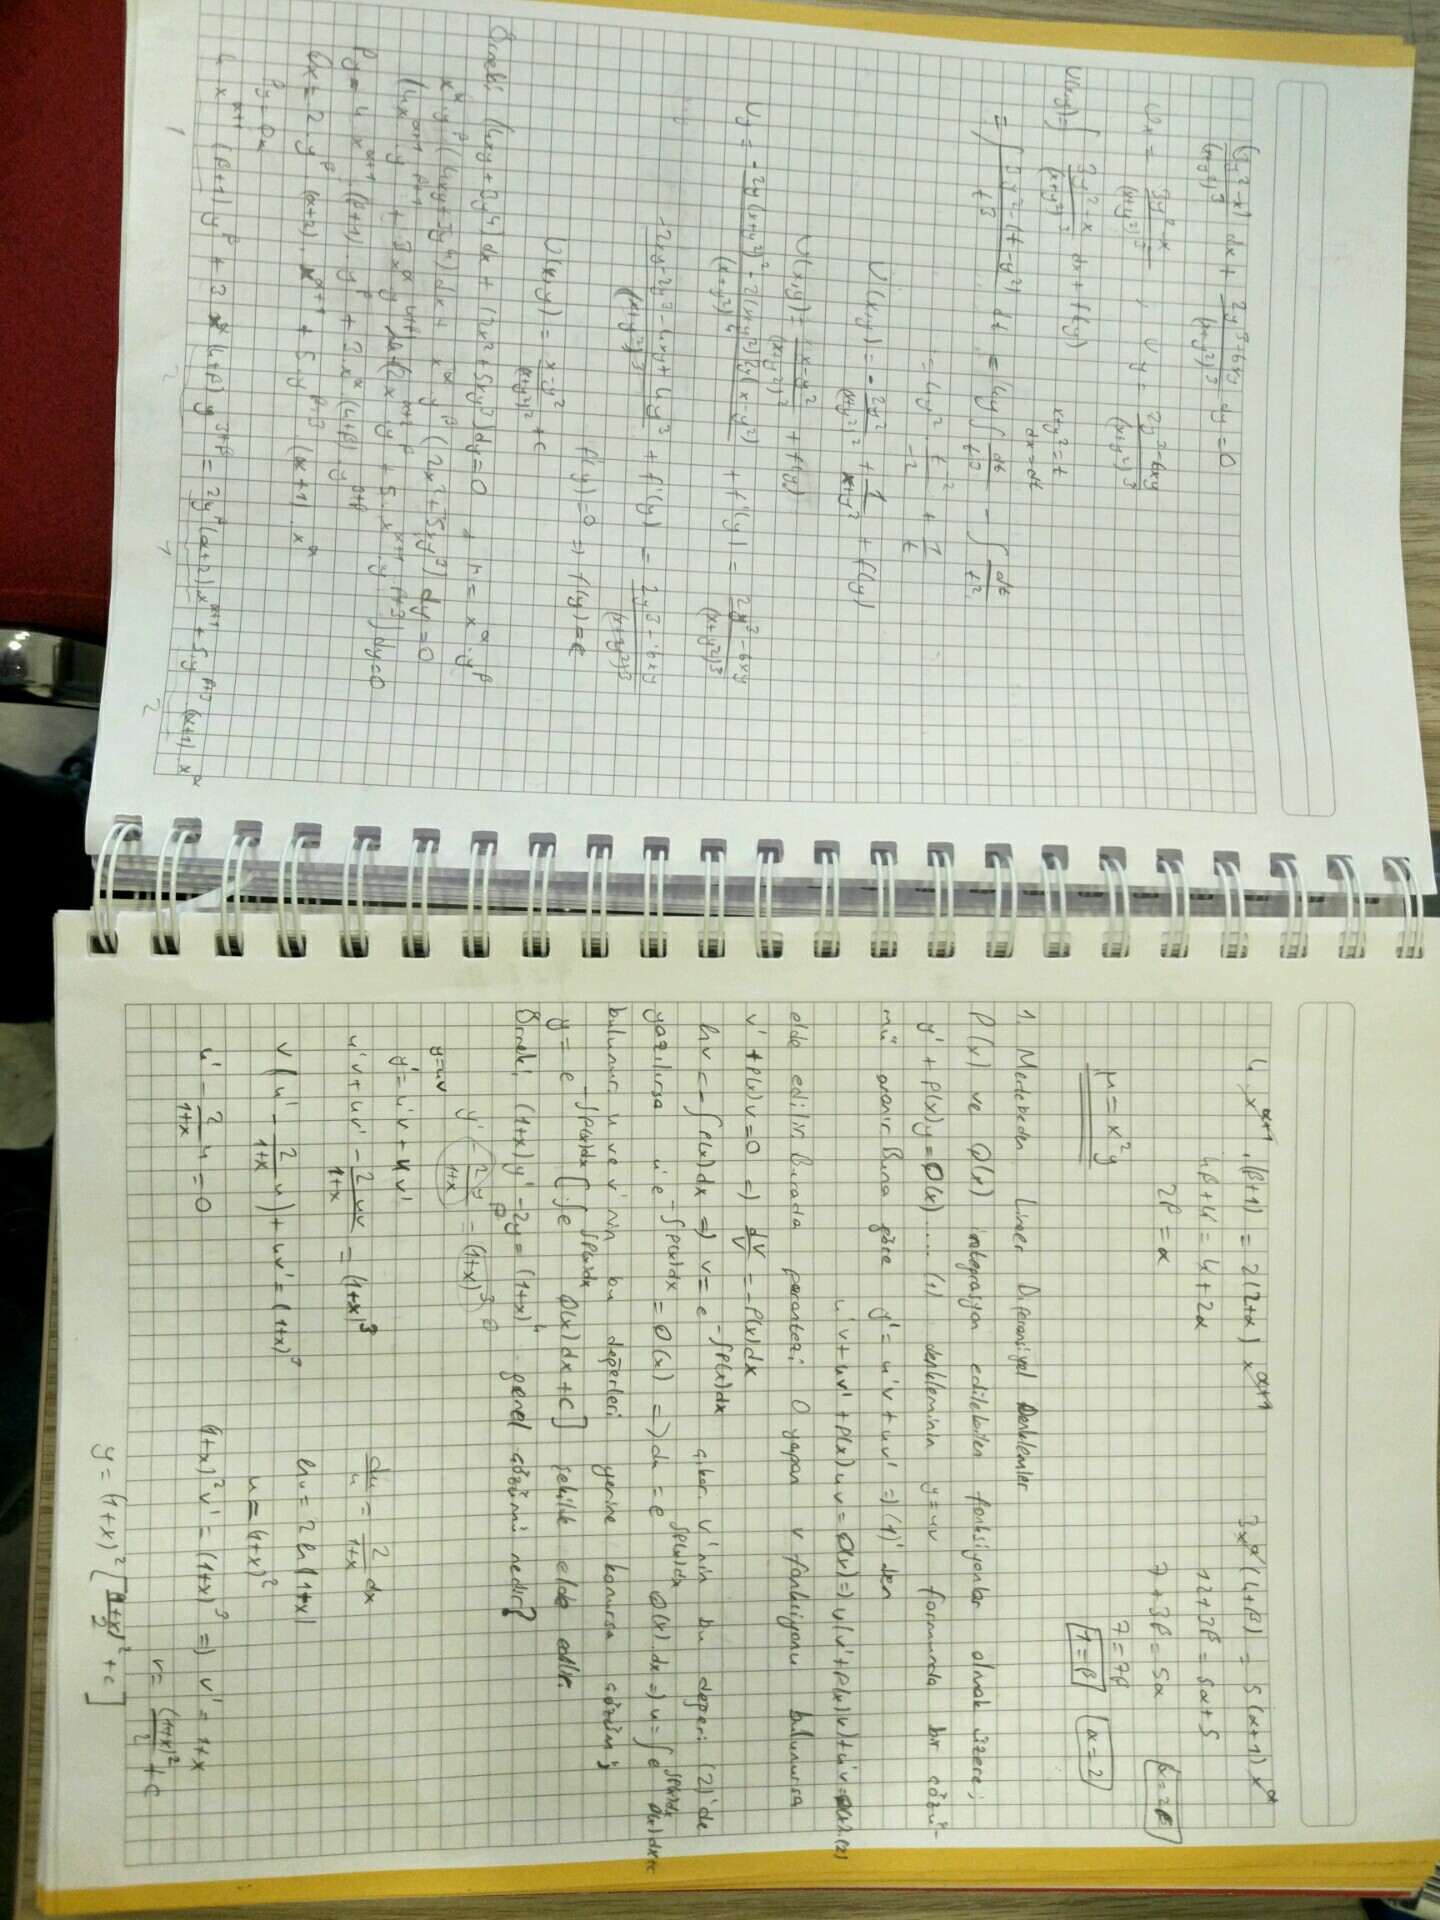 (3y²-x)/(x+y²)³ dx + (2y³-6xy)/(x+y²)³ dy = 0
Ux = (3y²-x)/(x+y²)³ ; Uy = (2y³-6xy)/(x+y²)³
U(x,y) = ∫ (3y²-x)/(x+y²)³ dx + f(y)
x+y² = t
dx = dt
= ∫ (3y²-(t-y²))/t³ dt = 4y ∫ dt/t³ - ∫ dt/t²
= 4y² · t⁻²/-2 + 1/t
U(x,y) = - 2y²/(x+y²)² + 1/(x+y²) + f(y)
U(x,y) = (x-y²)/(x+y²)² + f(y)
Uy = (-2y(x+y²)²-2(x+y²)2y(x-y²))/(x+y²)⁴ + f'(y) = (2y³-6xy)/(x+y²)³
(-2xy-2y³-4xy+4y³)/(x+y²)³ + f'(y) = (2y³-6xy)/(x+y²)³
f'(y)=0 => f(y)=c
U(x,y) = (x-y²)/(x+y²)² + c
Örnek: (4xy+3y⁴)dx + (2x²+5xy³)dy=0 , μ = x^α · y^β
x^α · y^β (4xy+3y⁴)dx + x^α y^β (2x²+5xy³) dy = 0
(4x^(α+1) · y^(β+1) + 3x^α y^(4+β))dx+(2x^(α+2) · y^β + 5 · x^(α+1) · y^(β+3))dy=0
Py = 4 x^(α+1) · (β+1) · y^β + 3 · x^α · (4+β) · y^(3+β)
Qx = 2 · y^β (α+2) · x^(α+1) + 5 · y^(β+3) · (α+1) · x^α
Py = Qx
4 x^(α+1) (β+1) y^β + 3 x^α (4+β) y^(3+β) = 2y^β (α+2) · x^(α+1) + 5 · y^(β+3) (α+1) · x^α
1 2 1 2
4 · x^(α+1) · (β+1) = 2(2+α) x^(α+1)
4β+4 = 4+2α
2β = α
μ = x²y
3x^α (4+β) = 5(α+1) x^α
12+3β = 5α+5
7+3β = 5α α=2β
7=7β
1=β α=2
1. Mertebeden Lineer Diferensiyel Denklemler
P(x) ve Q(x) integrasyon edilebilen fonksiyonlar olmak üzere;
y' + P(x)y = Q(x) .... (1) denkleminin y=uv formunda bir çözü-
mü aranır. Buna göre y' = u'v + uv' => (1)' den
u'v+uv' + P(x)uv = Q(x) => u(v'+P(x)v)+u'v=Q(x)..(2)
elde edilir. Burada parantezi 0 yapan v fonksiyonu bulunursa
v' + P(x)v=0 => dv/v = -P(x)dx
lnv = -∫P(x)dx => v = e^(-∫P(x)dx) çıkar. v'nin bu değeri (2)'de
yazılırsa u'e^(-∫P(x)dx) = Q(x) => du = e^(∫P(x)dx) Q(x).dx => u=∫e^(∫P(x)dx) Q(x)dx+c
bulunur. u ve v'nin bu değerleri yerine konursa çözüm;
y = e^(-∫P(x)dx) [∫e^(∫P(x)dx) Q(x)dx + c] şekilde elde edilir.
Örnek: (1+x)y' - 2y = (1+x)⁴ genel çözümü nedir?
y' - 2y/(1+x) = (1+x)³ P Q
y=uv
y' = u'v + uv'
u'v + uv' - 2uv/(1+x) = (1+x)³
v(u' - 2/(1+x) u) + uv' = (1+x)³
u' - 2/(1+x) u = 0
du/u = 2/(1+x) dx
lnu = 2 ln|1+x|
u = (1+x)²
(1+x)² v' = (1+x)³ => v' = 1+x
v = (1+x)²/2 + c
y = (1+x)² [(1+x)²/2 + c]